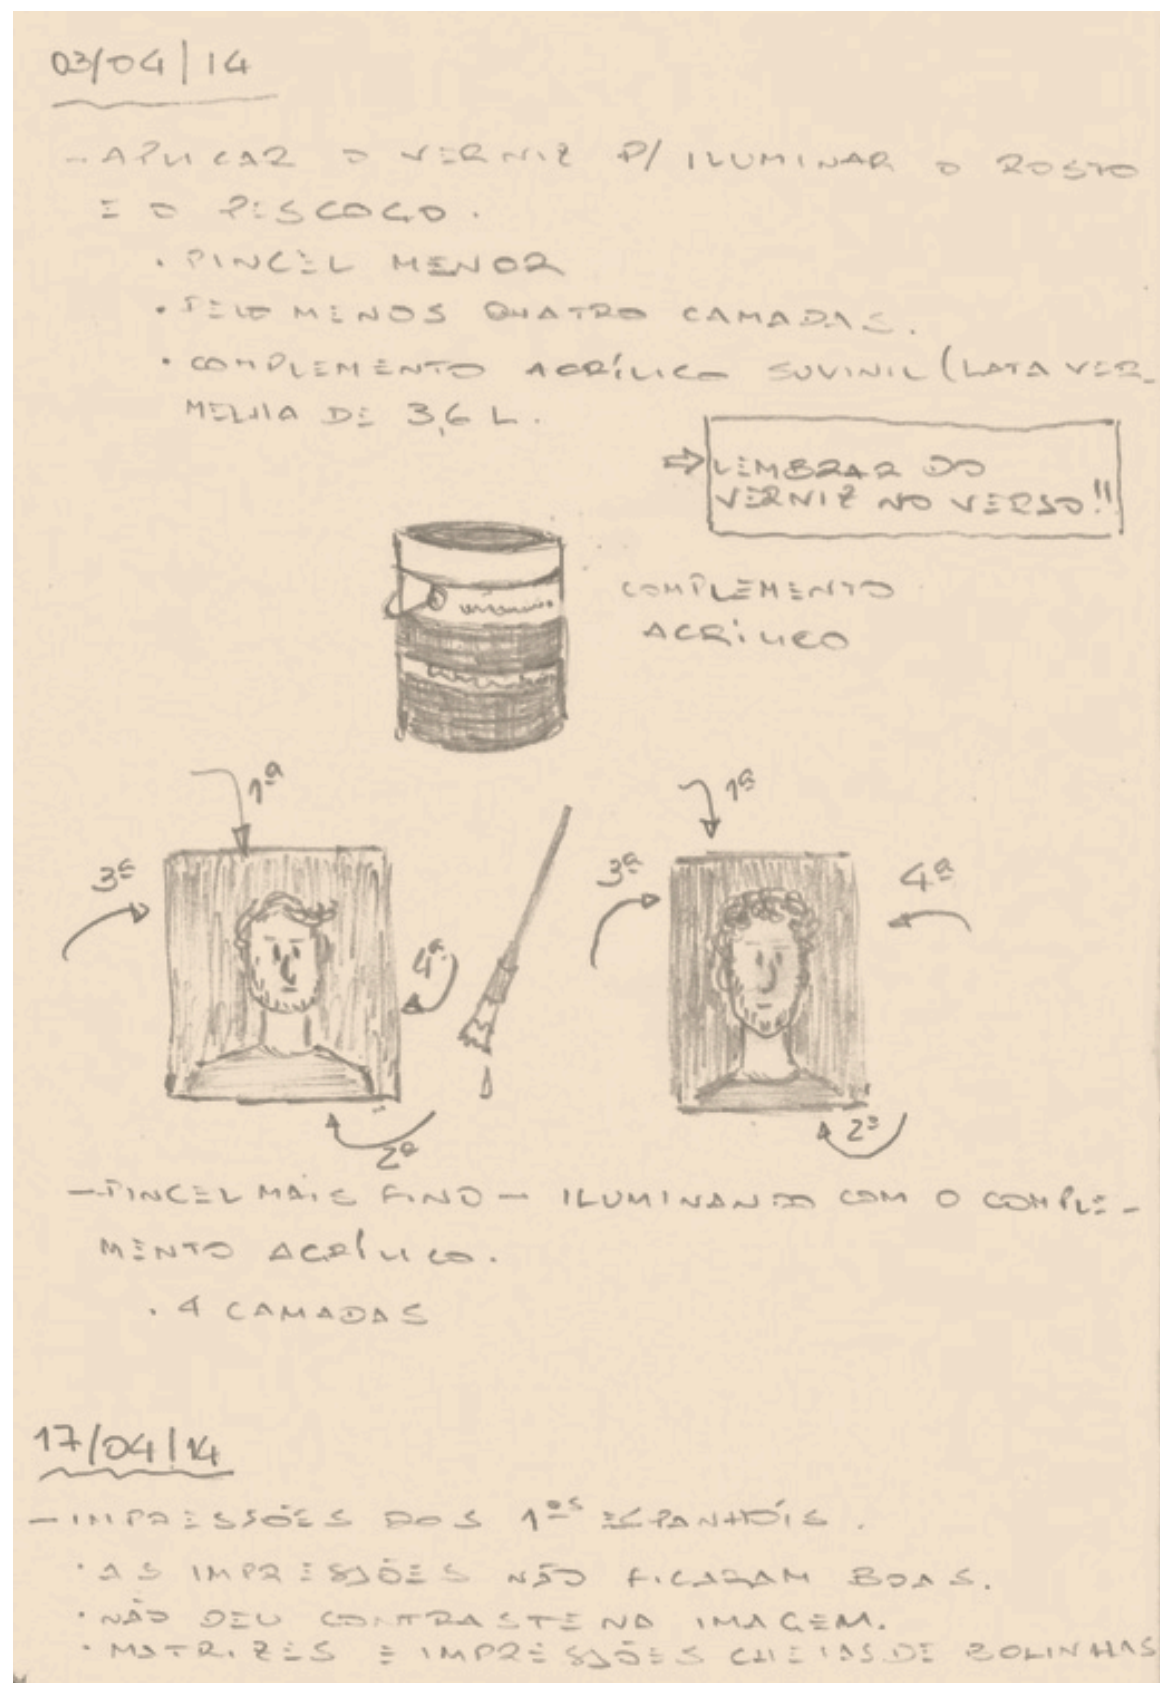 03/04/14
- APLICAR O VERNIZ P/ ILUMINAR O ROSTO
E O PESCOÇO.
• PINCEL MENOR
• PELO MENOS QUATRO CAMADAS.
• COMPLEMENTO ACRÍLICO SUVINIL (LATA VER-
MELHA DE 3,6 L.
⇨ LEMBRAR DO
VERNIZ NO VERSO!!
COMPLEMENTO
ACRÍLICO
1ª
3ª
4ª
2ª
1ª
3ª
4ª
2ª
- PINCEL MAIS FINO - ILUMINANDO COM O COMPLE-
MENTO ACRÍLICO.
• 4 CAMADAS
17/04/14
- IMPRESSÕES DOS 1ºs ESPANHÓIS.
• AS IMPRESSÕES NÃO FICARAM BOAS.
• NÃO DEU CONTRASTE NA IMAGEM.
• MATRIZES E IMPRESSÕES CHEIAS DE BOLINHAS